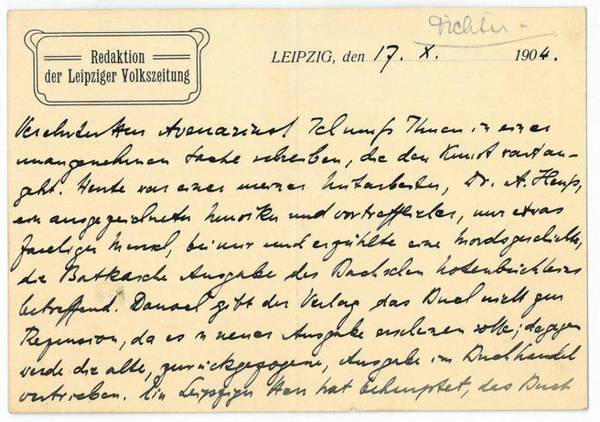 Dichter -
Redaktion
der Leipziger Volkszeitung
LEIPZIG, den 17. X. 1904.
Verehrter Herr Avenarius! Ich muss Ihnen in einer
unangenehmen Sache schreiben, die den Kunstwart an-
geht. Heute war einer meiner Mitarbeiter, Dr. A. Heuß,
ein ausgezeichneter Musiker und vortrefflicher, nur etwas
faseliger Mensch, bei mir und erzählte eine Mordsgeschichte,
die Batkasche Ausgabe des Bachschen Notenbüchleins
betreffend. Danach gibt der Verlag das Buch nicht zur
Rezension, da es in neuer Ausgabe erscheinen solle; dagegen
werde die alte, zurückgezogene, Ausgabe im Buchhandel
vertrieben. Ein Leipziger Herr hat behauptet, das Buch